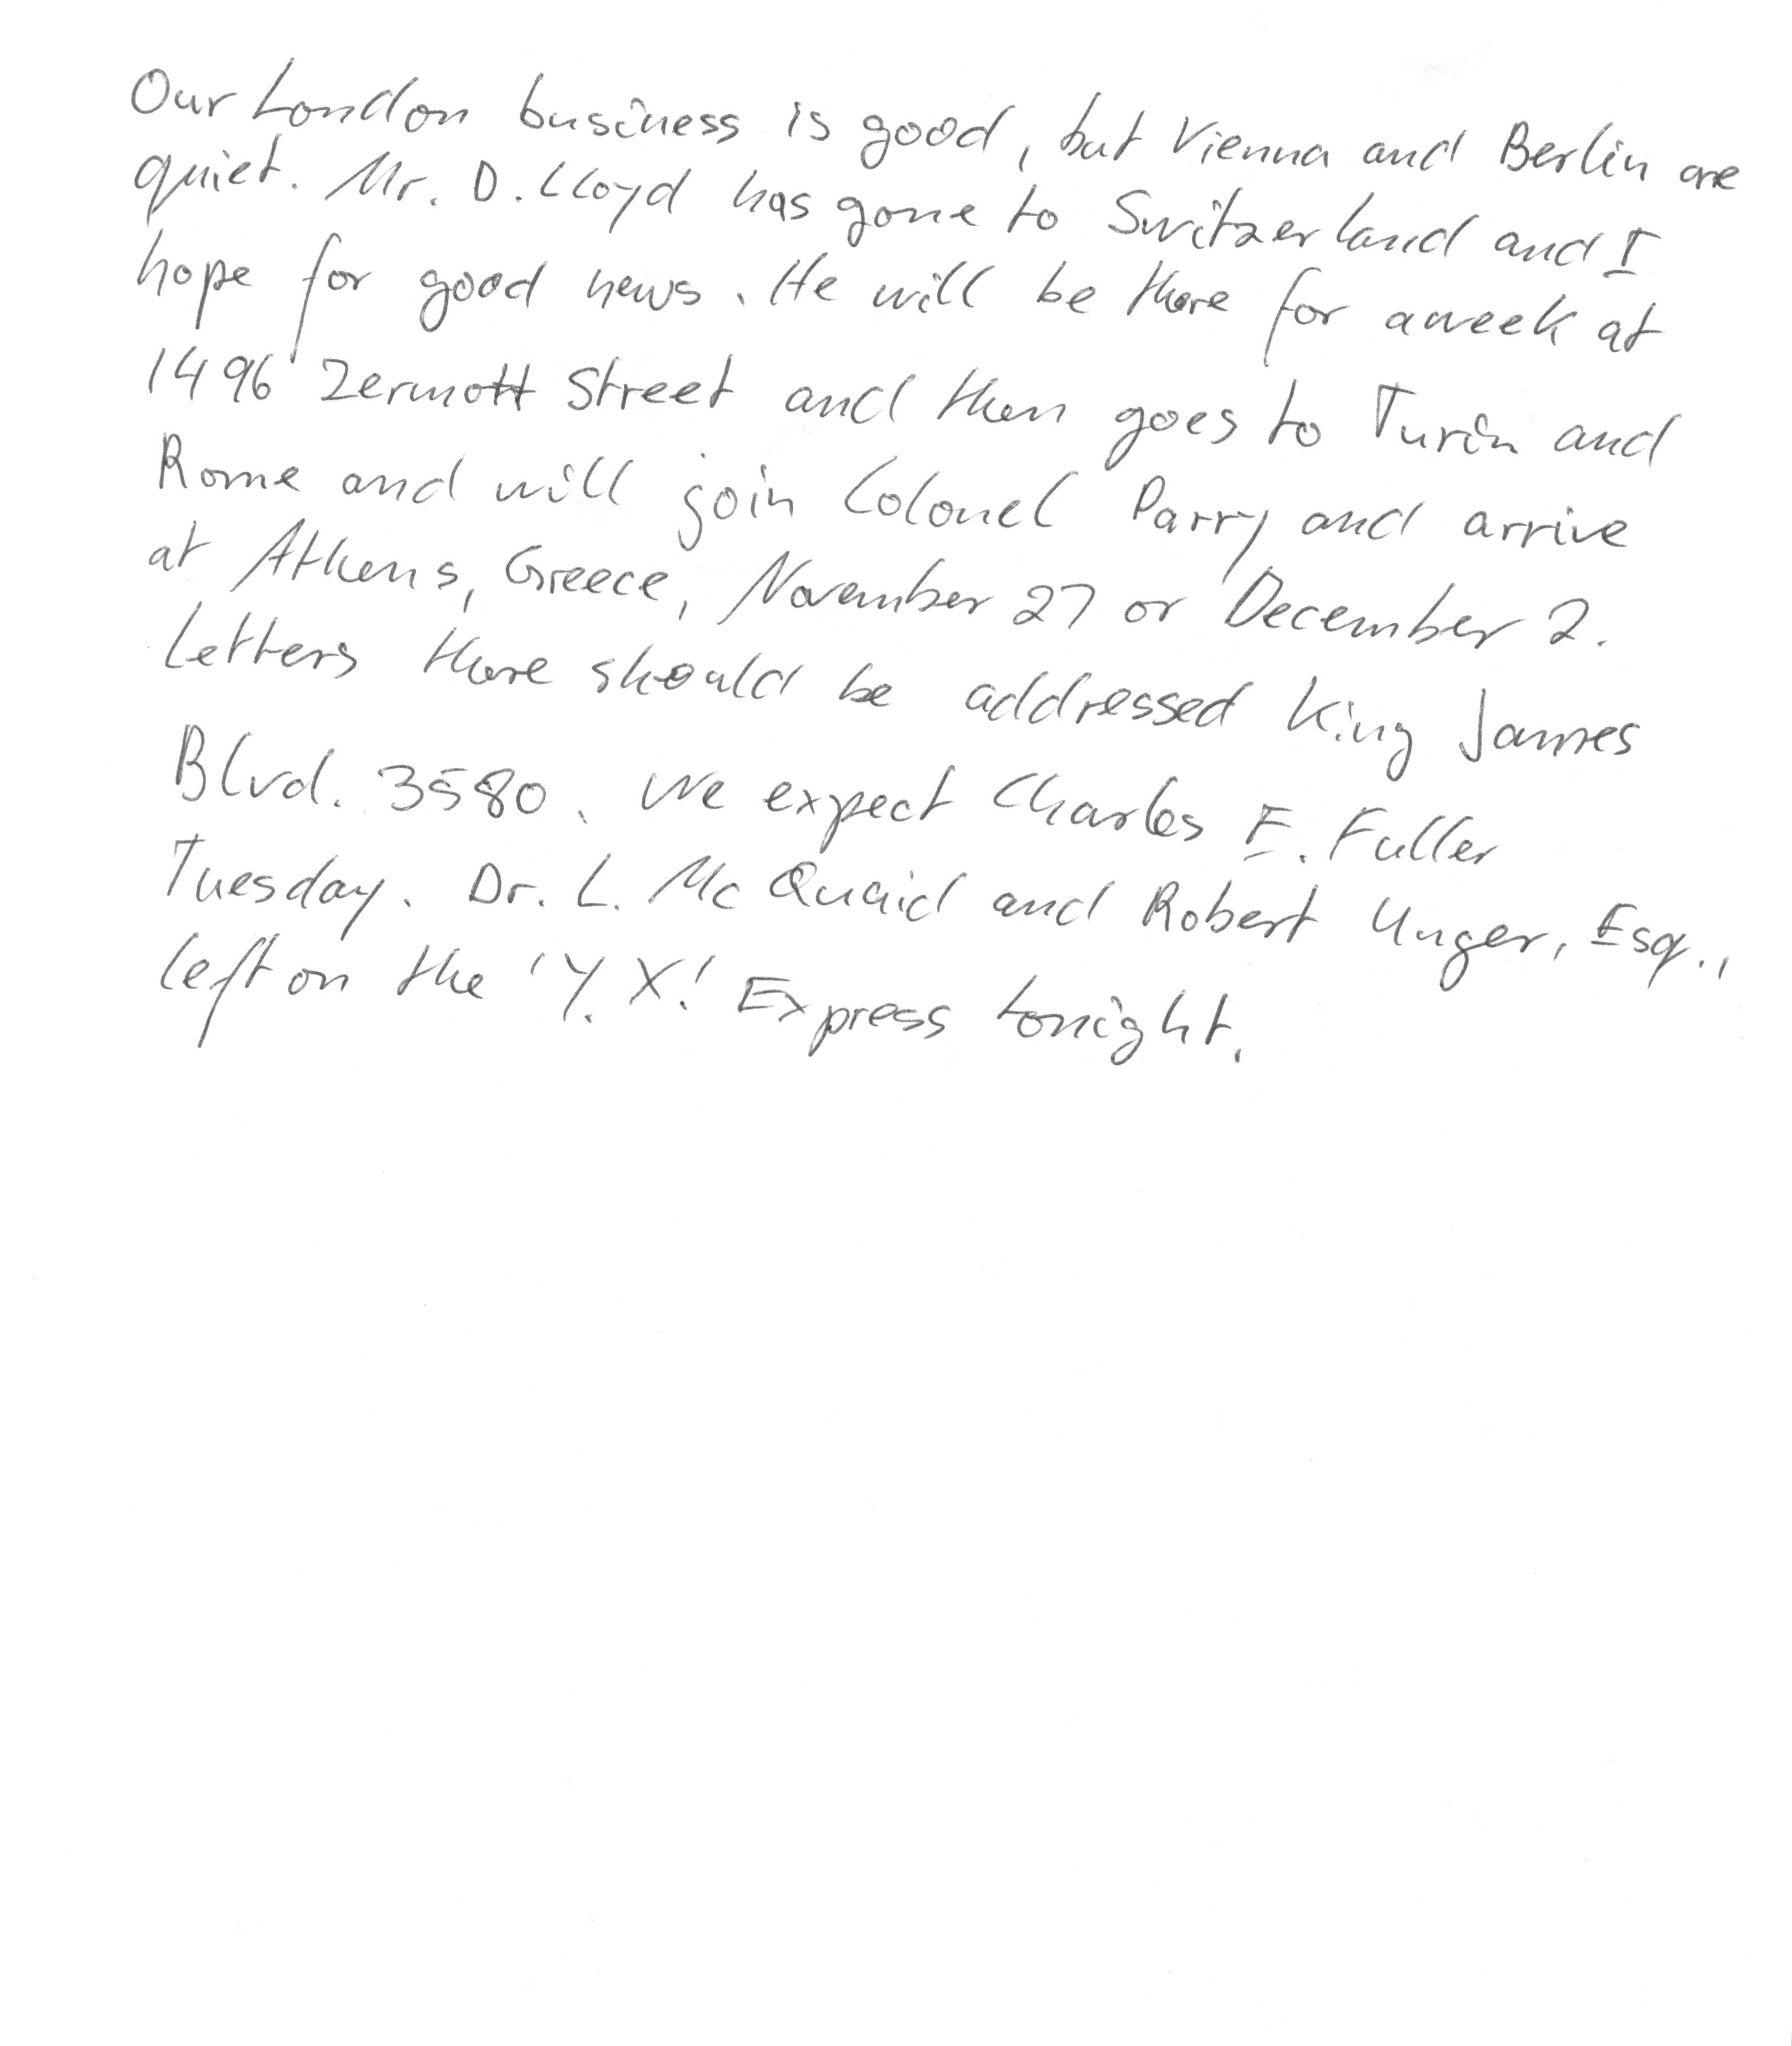 Our London business is good, but Vienna and Berlin are
quiet. Mr. D. Lloyd has gone to Switzerland and I
hope for good news. He will be there for a week at
1496 Zermott Street and then goes to Turin and
Rome and will join Colonel Parry and arrive
at Athens, Greece, November 27 or December 2.
Letters there should be addressed King James
Blvd. 3580. We expect Charles E. Fuller
Tuesday. Dr. L. Mc Quaid and Robert Unger, Esq.,
left on the 'Y.X.' Express tonight.